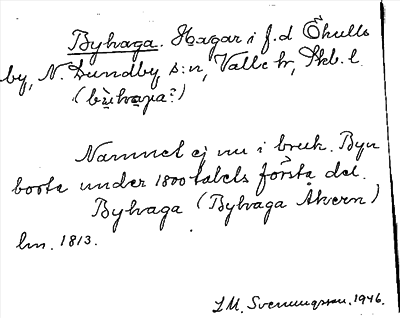 Byhaga. Hagar i f.d Ökulls
by, N. Lundby s:n, Valle hr, Skb. l.
Namnet ej nu i bruk. Byn
borta under 1800talets första del.
Byhaga (Byhaga Åkern)
lm. 1813.
I.M. Svenungsson. 1946.